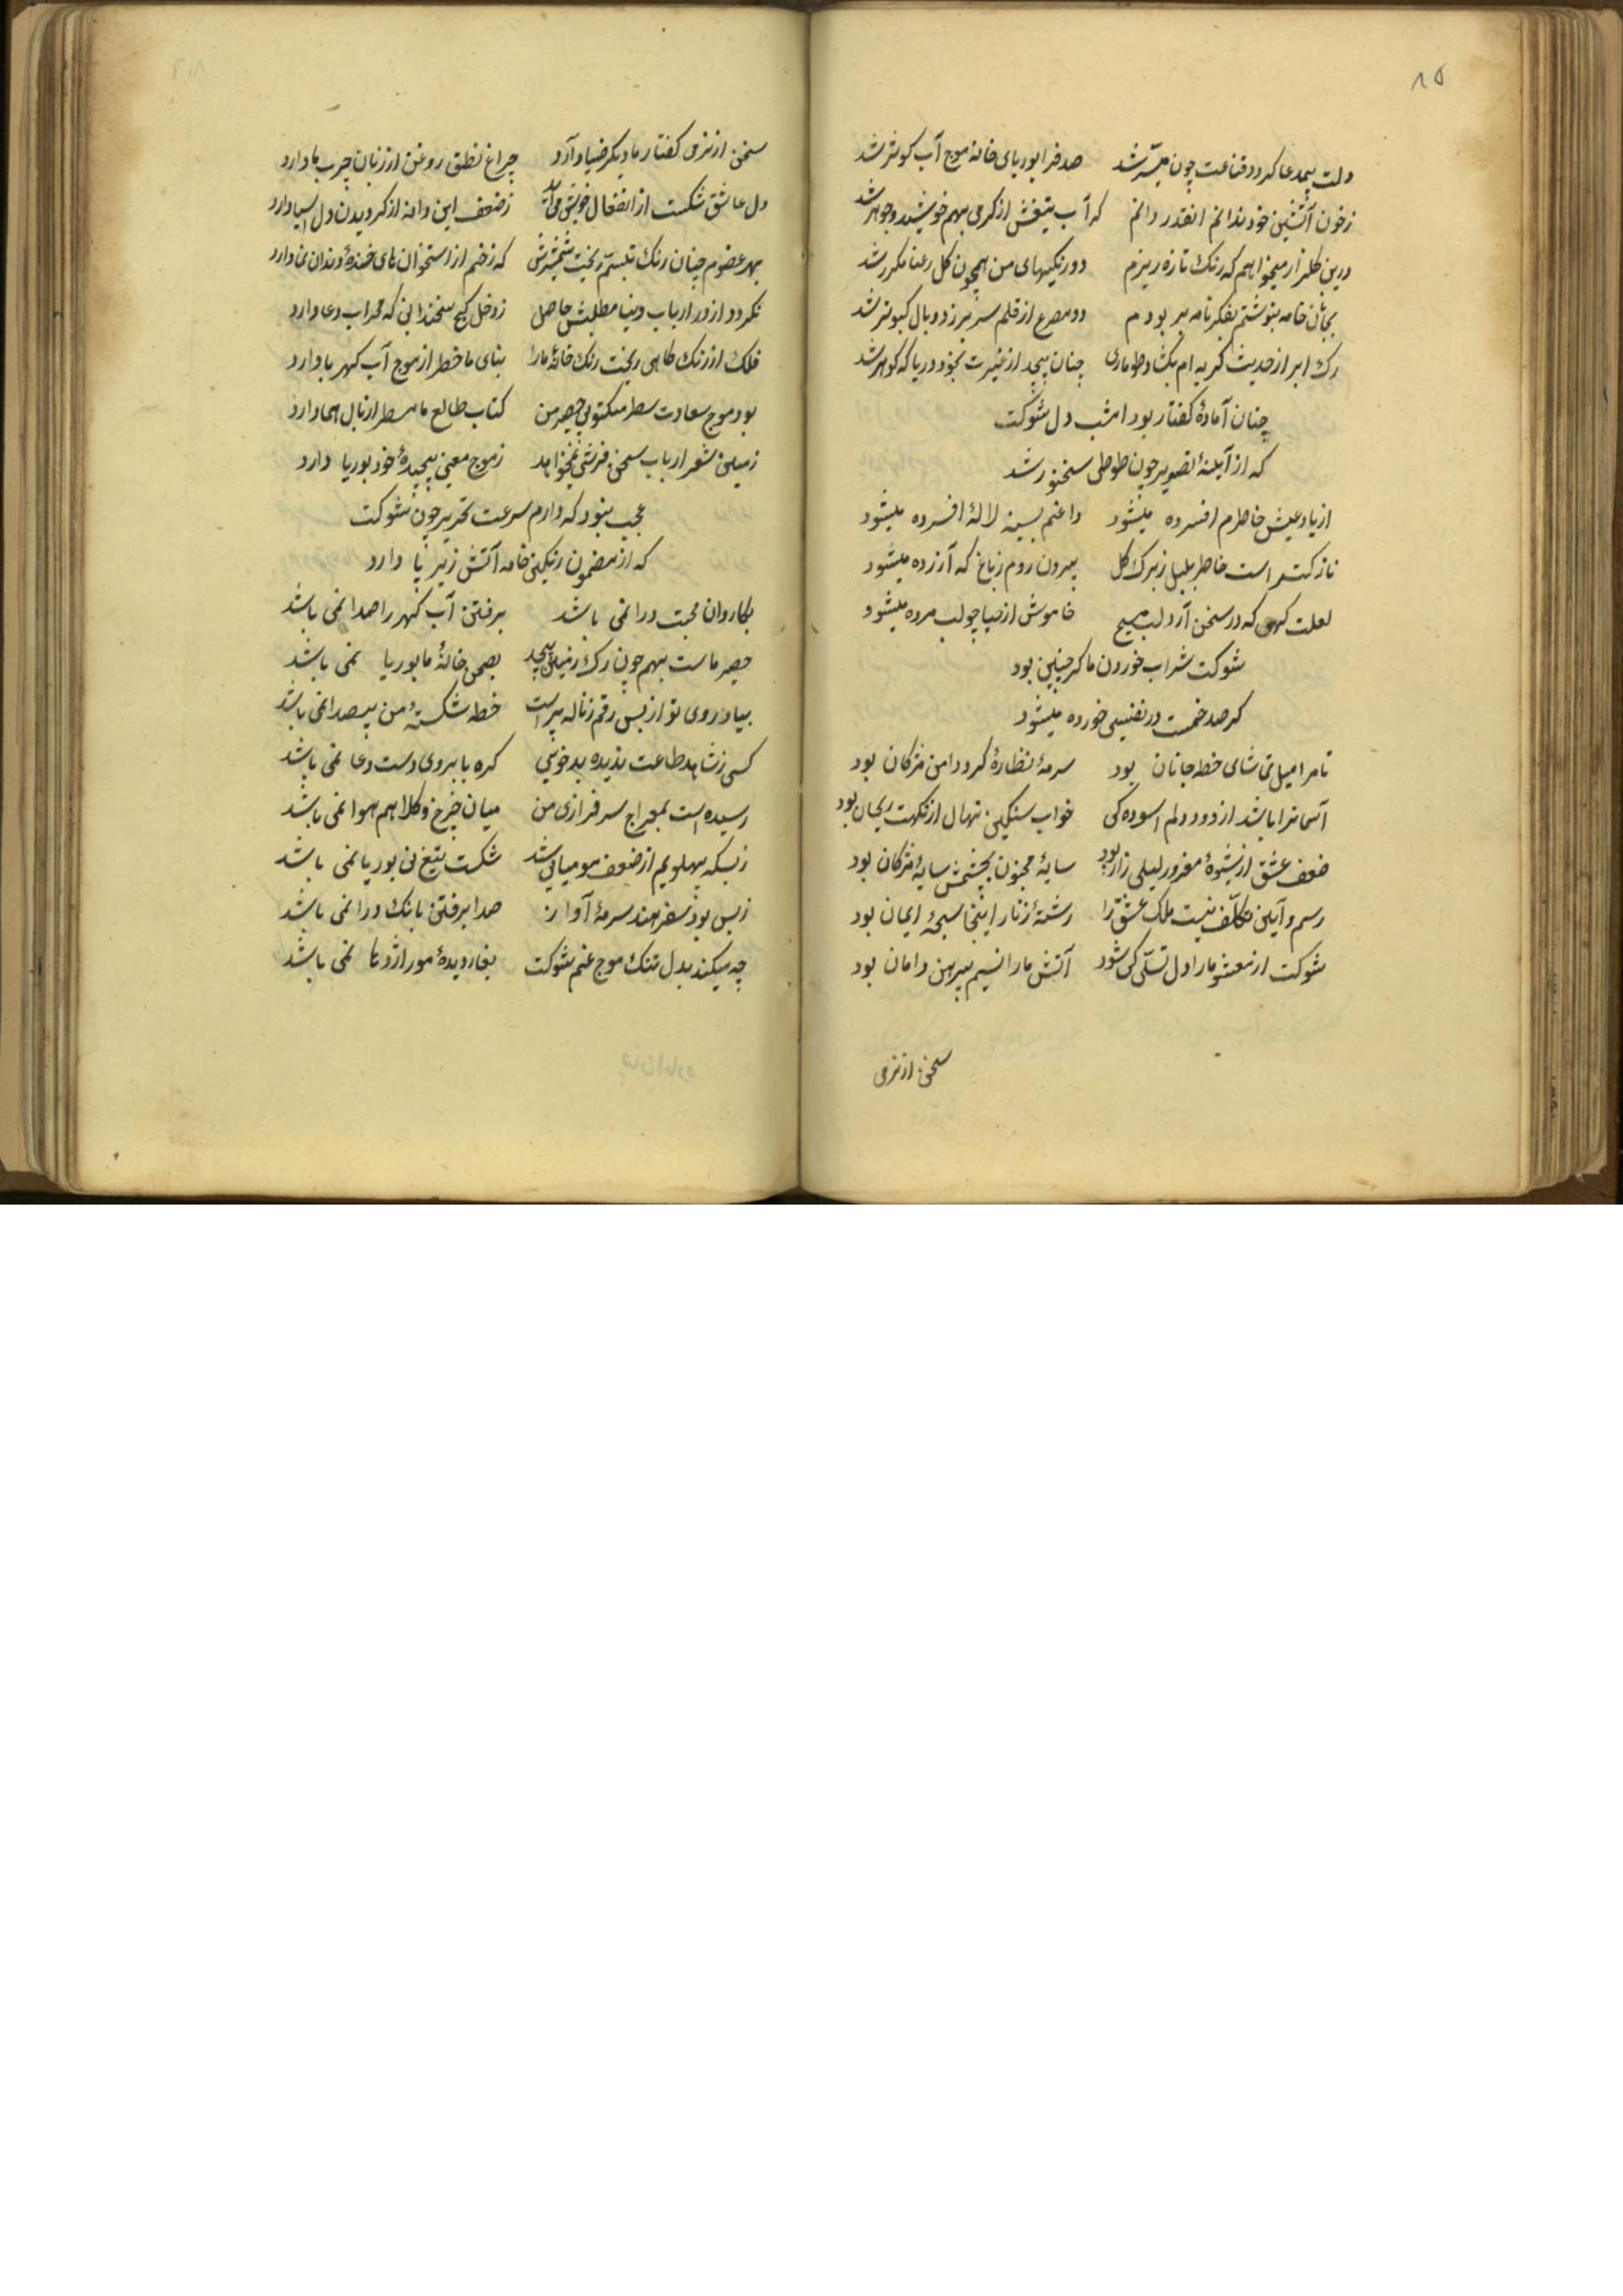 ۸۵
دلت بیمدعا گردد قناعت چون میسّر شد صدفرا بوریای خانه موج آب کوثر شد
زخون آتشین خود ندانم اینقدر دانم که آب تیغش از گرمی بهم جوشید و جوهر شد
درین گلزار میخواهم که رنگ تازه ریزم دو رنگیهای من همچون گل رعنا مکرر شد
خامه بنوشتم بفکر نامه بر بودم دو مصرع از قلم سر برزد و بال کبوتر شد
رک ابر از حدیث کریه ام بکشاد طوماری چنان پیچد از غیرت بخود دریا که کوهر شد
چنان آمادهٔ کفتار بود امشب دل شوکت
که از آیینهٔ تصویر چون طوطی سخنور شد
از یاد عیش خاطرم افسرده میشود داغم بسینه لالهٔ افسرده میشود
نازکتر است خاطر بلبل ز برک کل بیرون روم ز باغ که آزرده میشود
لعلت کهی که در سخن آرد لب مسیح خاموش از حیا چو لب مرده میشود
شوکت شراب خوردن ما کر چنین بود
کر صد خمست در نفسی خورده میشود
تا مرا میل تماشای خط جانان بود سرمهٔ نظاره کرد دامن مژکان بود
آسمانرا باشد از دود دلم آسوده کی خواب سنکین نهال از نکهت ریحان بود
ضعف عشق از شیوهٔ مغرور لیلی زار بود سایهٔ مجنون بچشمش سایهٔ مژکان بود
رسم و آیین تکلّف نیست ملک عشق را رشتهٔ زنار اینجا سبحهٔ ایمان بود
شوکت از معشوق ما را دل تسلّی کی شود آتش ما را نسیم پیرهن دامان بود
سخن از نرمی
سخن از نرمی کفتار ما دیکر ضیا دارد چراغ نطق روغن از زبان چرب ما دارد
دل عاشق شکست از انفعال خویش می‌آید ز ضعف این دانه از کردیدن دل آسیا دارد
بهر عضوم چنان رنک تبسّم ریخت شمشیرش که زخم از استخوان های خندهٔ دندان نما دارد
نکردد از در ارباب دنیا مطلبش حاصل ز دخل کج سخندانی که محراب دعا دارد
فلک از رنک کاهی ریخت رنک خانهٔ ما را بنای ما خطر از موج آب کهربا دارد
بود موج سعادت سطر مکتوبی حصیر من کتاب طالع ما مسطر از بال هما دارد
زمین شعر ارباب سخن فرشی نمیخواهد ز موج معنی پیچیدهٔ خود بوریا دارد
عجب نبود که دارم سرعت تحریر چون شوکت
که از مضمون رنکین خامه آتش زیر پا دارد
بکاروان محبت درا نمی باشد برفتن آب کهر را صدا نمی باشد
حصیر ماست بهم چون رک زمین پیچد بصحن خانهٔ ما بوریا نمی باشد
بیاد روی تو از بس رقم ز ناله پر است خط شکستهٔ من بیصدا نمی باشد
کسی ز شاهد طاعت ندیده بدخویی کره بابروی دست دعا نمی باشد
رسیده است بمعراج سرفرازی من میان چرخ و کلاهم هوا نمی باشد
ز بسکه پهلویم از ضعف مومیایی شد شکست تیغ نی بوریا نمی باشد
ز بس بود سفر هند سرمهٔ آواز صدا برفتن بانک درا نمی باشد
چه میکند بدل تنک موج غم شوکت بغار دیدهٔ مور اژدها نمی باشد